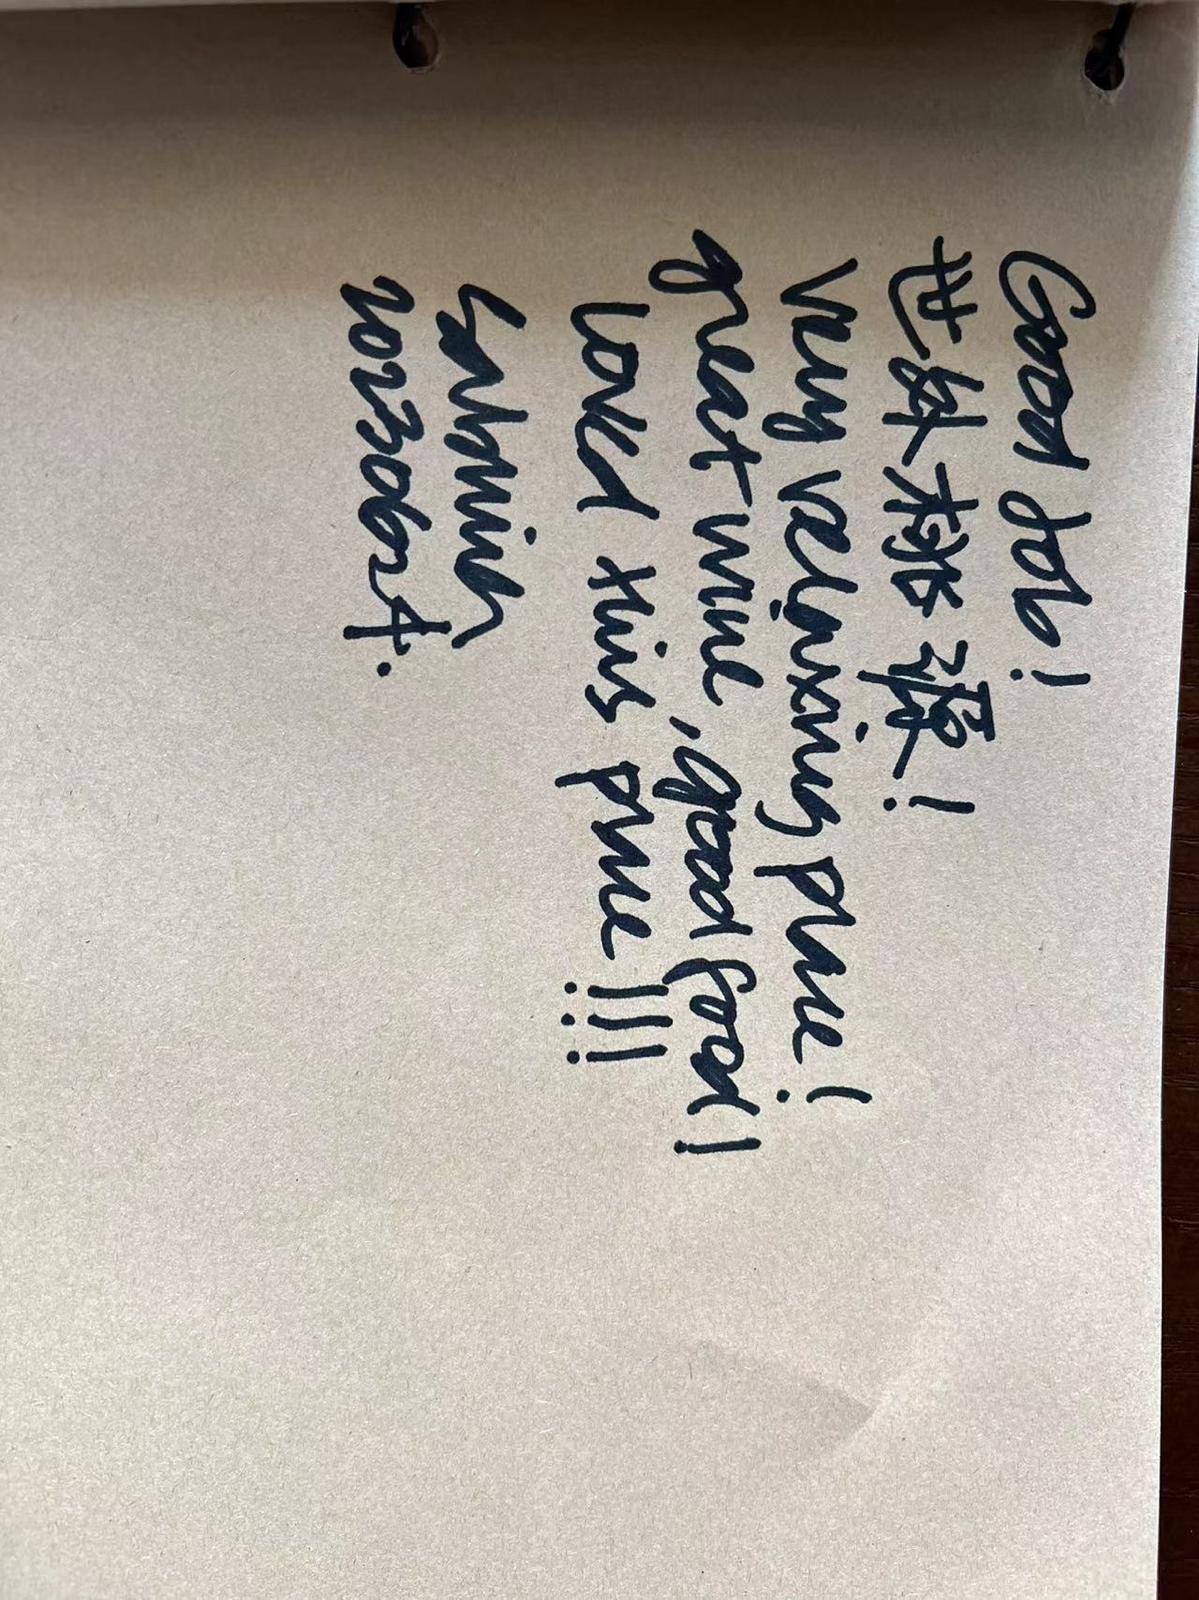 Good Job!
世外桃源!
Very relaxing place!
great wine, good food!
Loved this place!!!
20230624.